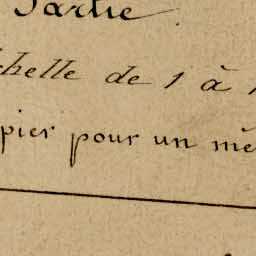 Partie.
chelle de 1 à 1
pier pour un mè